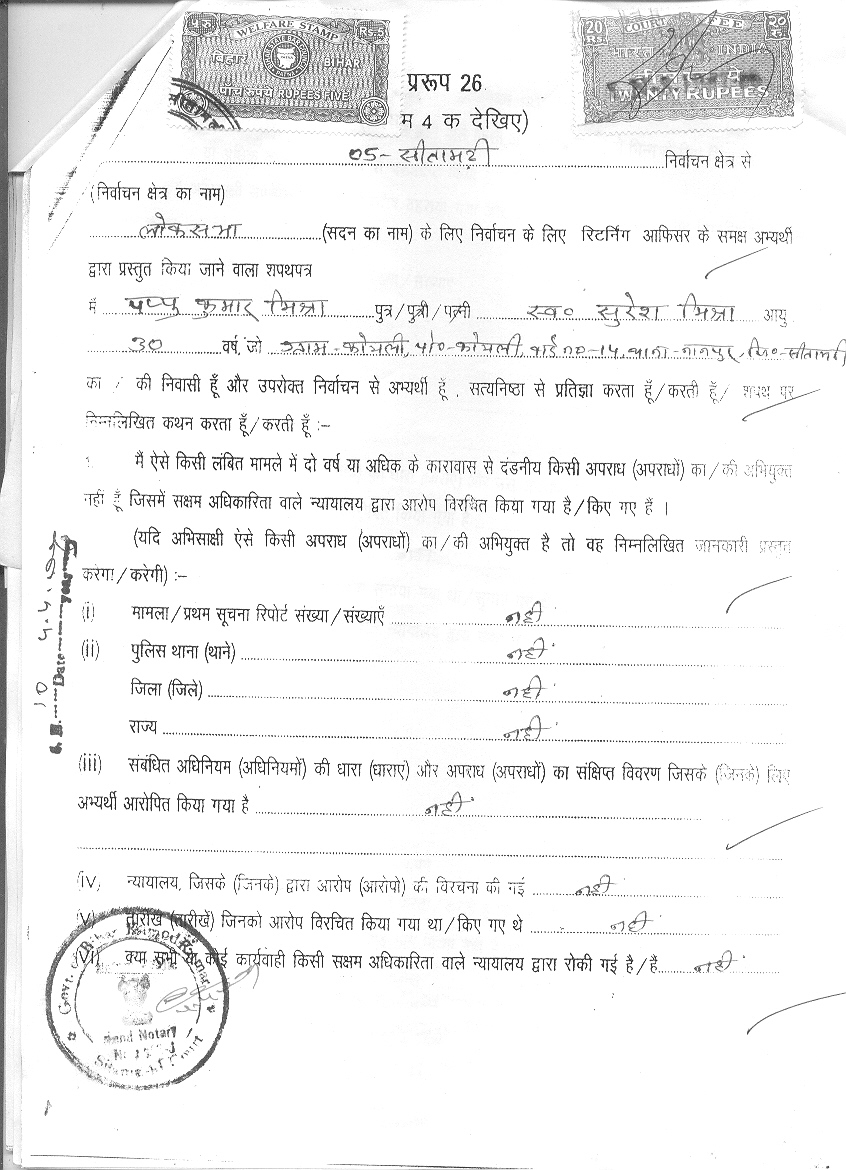 ५ रु. WELFARE STAMP Rs.5
बिहार BIHAR
पाँच रुपये RUPEES FIVE
20 Rs. COURT FEE २० रु.
भारत INDIA
TWENTY RUPEES
प्ररूप 26
म 4 क देखिए)
05- सीतामढ़ी निर्वाचन क्षेत्र से
(निर्वाचन क्षेत्र का नाम)
लोकसभा (सदन का नाम) के लिए निर्वाचन के लिए रिटर्निंग आफिसर के समक्ष अभ्यर्थी
द्वारा प्रस्तुत किया जाने वाला शपथपत्र
मैं पप्पु कुमार मिश्रा पुत्र/पुत्री/पत्नी स्व० सुरेश मिश्रा आयु
30 वर्ष, जो ग्राम-कोयली, पो०-कोयली, वार्ड न०-14, थाना-नानपुर, जि०-सीतामढ़ी
का / की निवासी हूँ और उपरोक्त निर्वाचन से अभ्यर्थी हूँ , सत्यनिष्ठा से प्रतिज्ञा करता हूँ/करती हूँ/ शपथ पर
निम्नलिखित कथन करता हूँ/करती हूँ :–
मैं ऐसे किसी लंबित मामले में दो वर्ष या अधिक के कारावास से दंडनीय किसी अपराध (अपराधों) का/की अभियुक्त
नहीं हूँ जिसमें सक्षम अधिकारिता वाले न्यायालय द्वारा आरोप विरचित किया गया है/किए गए हैं ।
(यदि अभिसाक्षी ऐसे किसी अपराध (अपराधों) का/की अभियुक्त है तो वह निम्नलिखित जानकारी प्रस्तुत
करेगा/करेगी) :–
(i) मामला/प्रथम सूचना रिपोर्ट संख्या/संख्याएँ नहीं
(ii) पुलिस थाना (थाने) नहीं
जिला (जिले) नहीं
राज्य नहीं
(iii) संबंधित अधिनियम (अधिनियमों) की धारा (धाराएं) और अपराध (अपराधों) का संक्षिप्त विवरण जिसके (जिनके) लिए
अभ्यर्थी आरोपित किया गया है नहीं
(iv) न्यायालय, जिसके (जिनके) द्वारा आरोप (आरोपो) की विरचना की गई नहीं
(v) तारीख (तारीखें) जिनको आरोप विरचित किया गया था/किए गए थे नहीं
(vi) क्या सभी या कोई कार्यवाही किसी सक्षम अधिकारिता वाले न्यायालय द्वारा रोकी गई है/हैं नहीं
Date
Govt. of Bihar
Notary